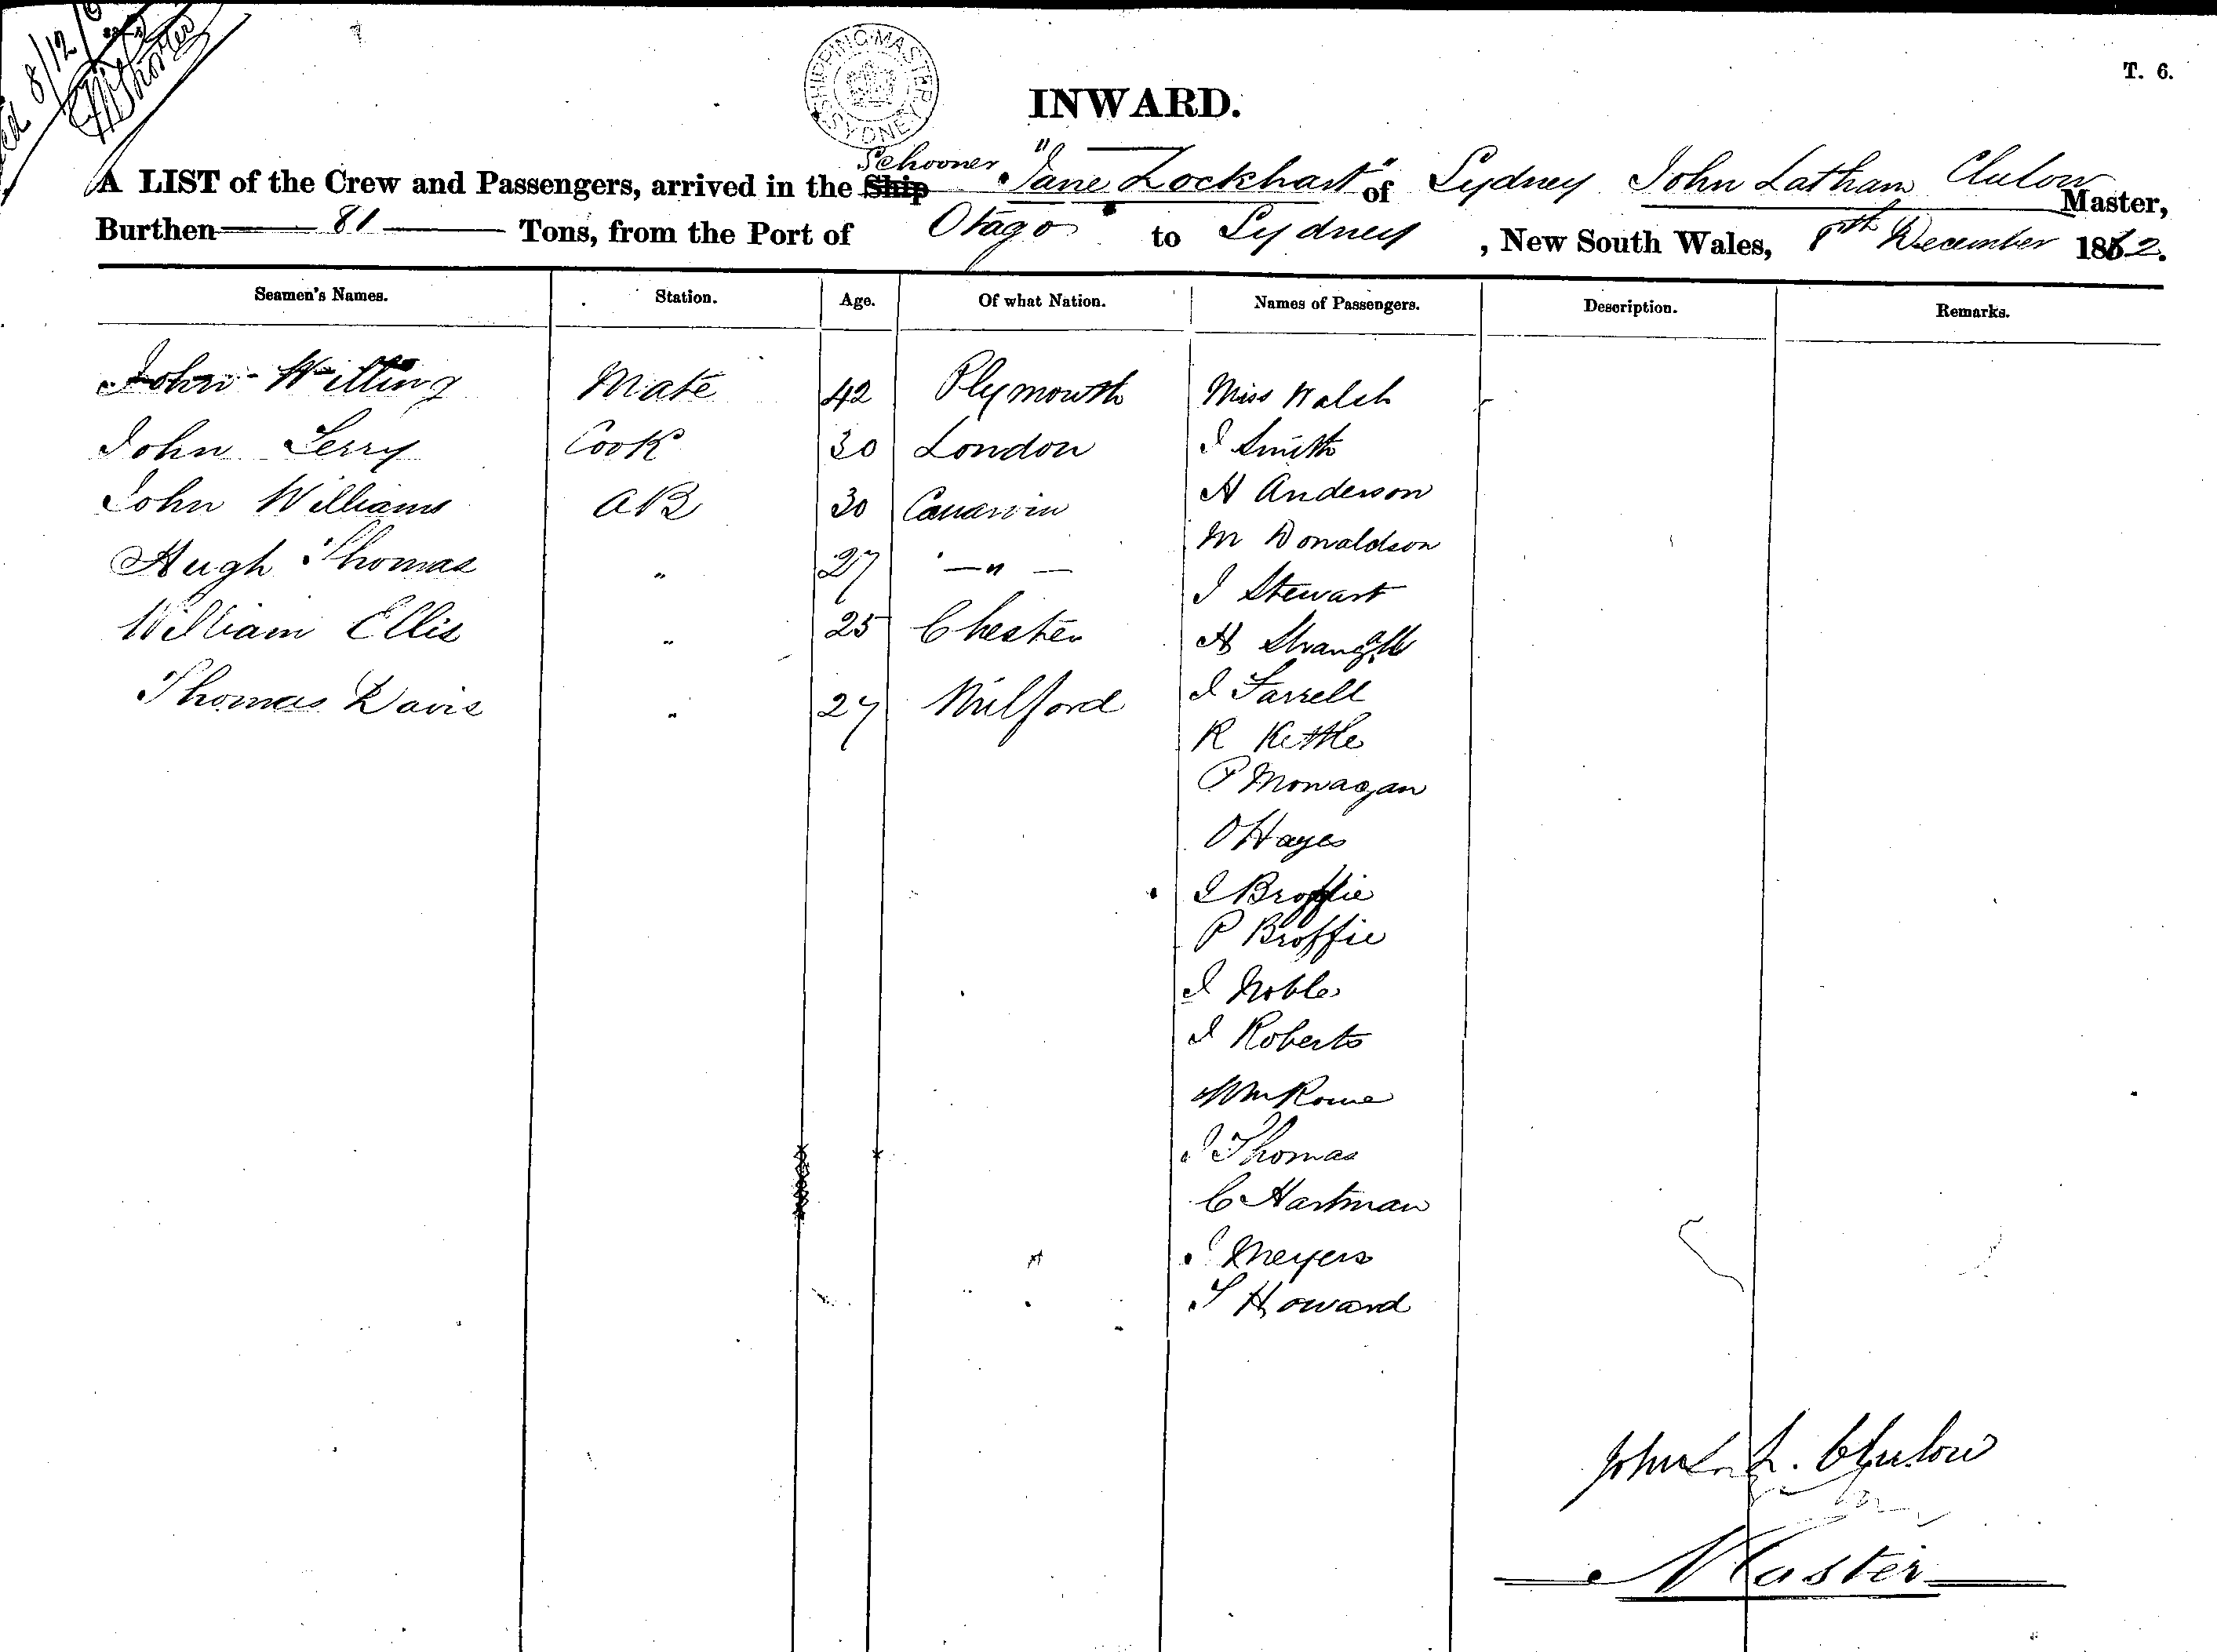 ed 8/12/6
SHIPPING MASTER SYDNEY
T. 6.
INWARD.
A LIST of the Crew and Passengers, arrived in the Ship Schooner "Jane Lockhart" of Sydney John Latham Clulow Master,
Burthen 81 Tons, from the Port of Otago to Sydney, New South Wales, 8th December 1862.
Seamen's Names. Station. Age. Of what Nation. Names of Passengers. Description. Remarks.
John Witting Mate 42 Plymouth Miss Walsh
John Serry Cook 30 London J Smith
John Williams AB 30 H Anderson
Hugh Thomas " 27 " M Donaldson
J Stewart
William Ellis " 25 Chester H
Thomas Davis " 27 Milford J Farrell
R Kettle
P Monagan
O Hayes
J Broffie
P Broffie
J Noble
J Roberts
Wm Rowe
J Thomas
C Hartman
J Meyers
S Howard
John L. Clulow
Master